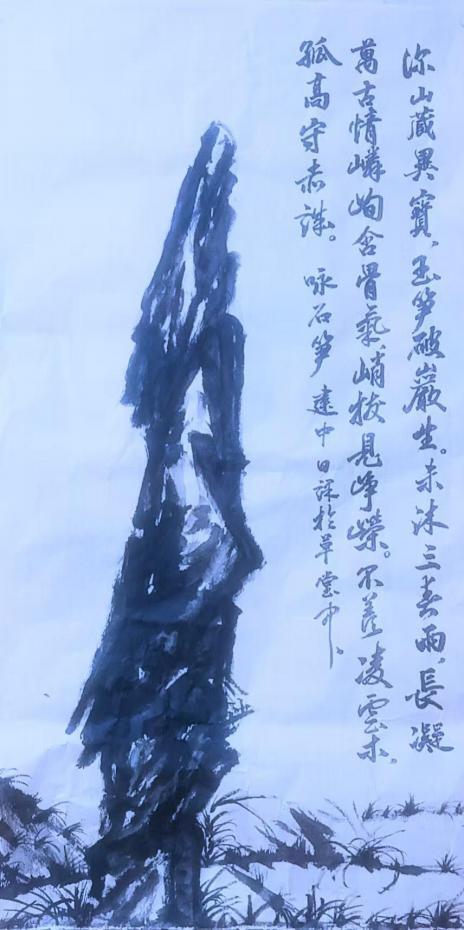 深山藏異寶、玉笋破巖生。未沐三春雨、長凝
萬古情嶙峋含骨氣、峭拔見崢嶸。不羨凌雲木、
孤高守赤誠。咏石笋 建中日課於草堂中、